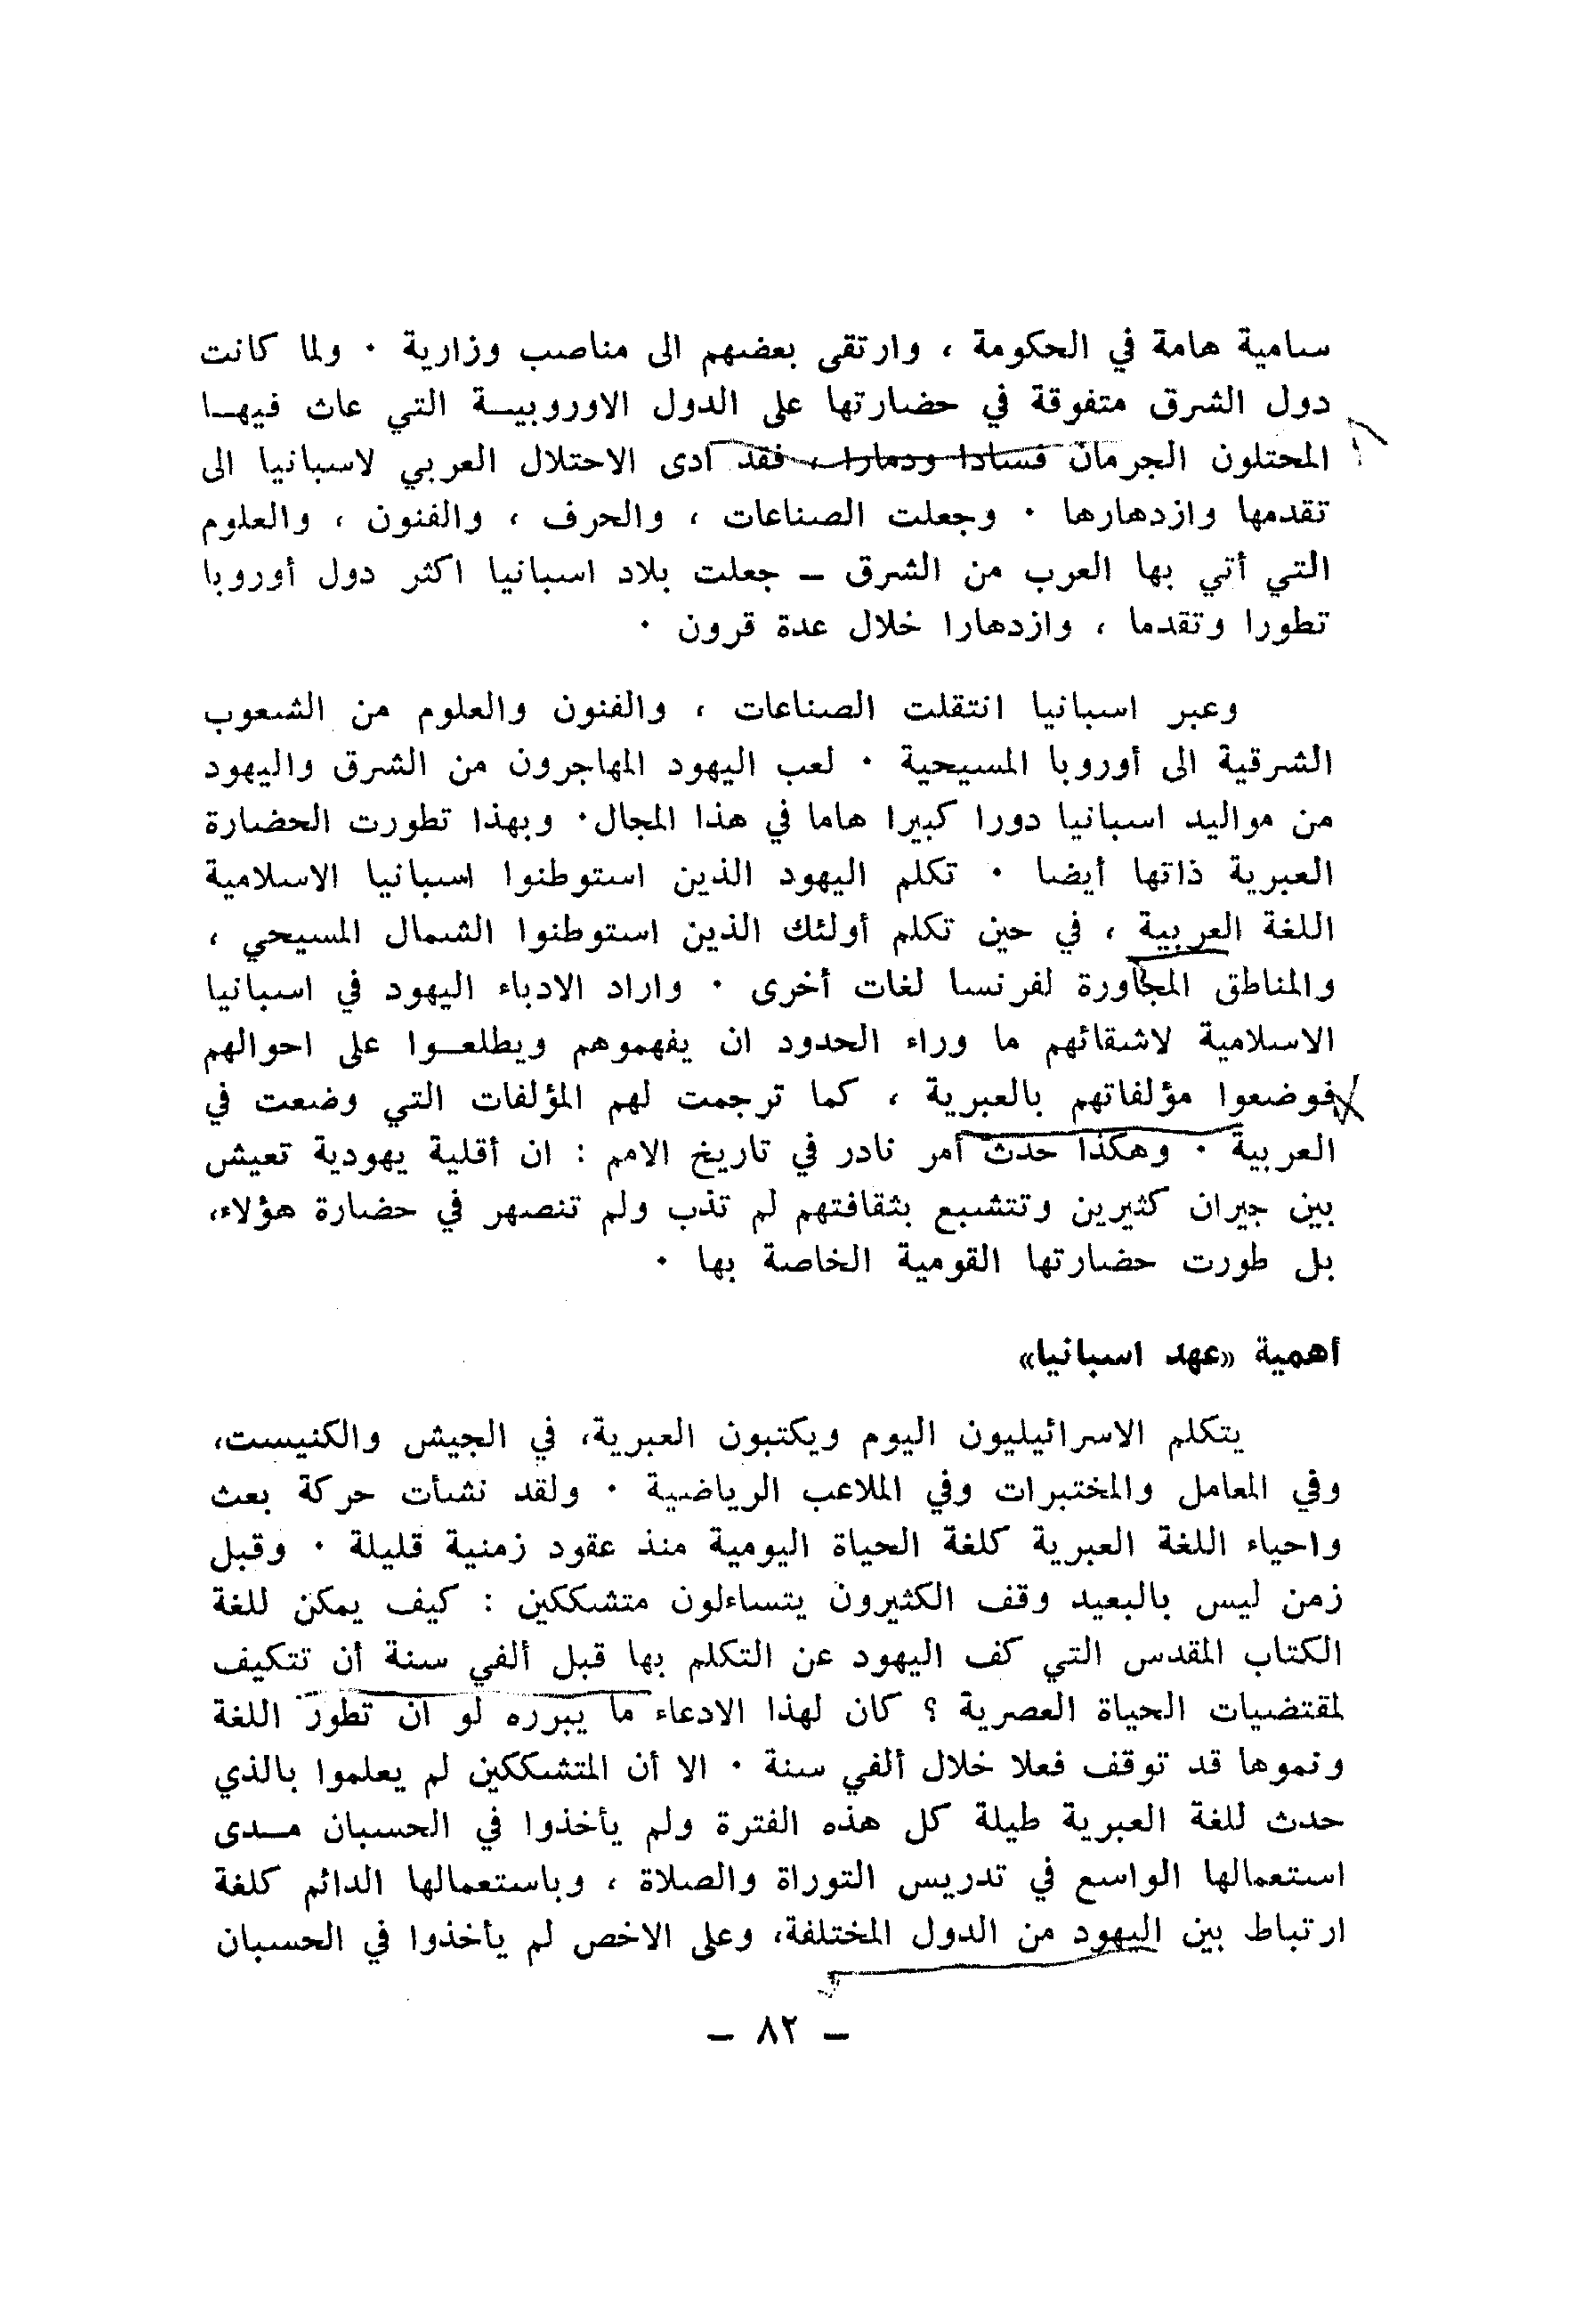 سامية هامة في الحكومة ، وارتقى بعضهم الى مناصب وزارية ٠ ولما كانت
دول الشرق متفوقة في حضارتها على الدول الاوروبيــة التي عاث فيهــا
المحتلون الجرمان فسادا ودمارا ، فقد ادى الاحتلال العربي لاسبانيا الى
تقدمها وازدهارها ٠ وجعلت الصناعات ، والحرف ، والفنون ، والعلوم
التي أتي بها العرب من الشرق – جعلت بلاد اسبانيا اكثر دول أوروبا
تطورا وتقدما ، وازدهارا خلال عدة قرون ٠
وعبر اسبانيا انتقلت الصناعات ، والفنون والعلوم من الشعوب
الشرقية الى أوروبا المسيحية ٠ لعب اليهود المهاجرون من الشرق واليهود
من مواليد اسبانيا دورا كبيرا هاما في هذا المجال٠ وبهذا تطورت الحضارة
العبرية ذاتها أيضا ٠ تكلم اليهود الذين استوطنوا اسبانيا الاسلامية
اللغة العربية ، في حين تكلم أولئك الذين استوطنوا الشمال المسيحي ،
والمناطق المجاورة لفرنسا لغات أخرى ٠ واراد الادباء اليهود في اسبانيا
الاسلامية لاشقائهم ما وراء الحدود ان يفهموهم ويطلعــوا على احوالهم
فوضعوا مؤلفاتهم بالعبرية ، كما ترجمت لهم المؤلفات التي وضعت في
العربية ٠ وهكذا حدث أمر نادر في تاريخ الامم : ان أقلية يهودية تعيش
بين جيران كثيرين وتتشبع بثقافتهم لم تذب ولم تنصهر في حضارة هؤلاء،
بل طورت حضارتها القومية الخاصة بها ٠
أهمية «عهد اسبانيا»
يتكلم الاسرائيليون اليوم ويكتبون العبرية، في الجيش والكنيست،
وفي المعامل والمختبرات وفي الملاعب الرياضية ٠ ولقد نشأت حركة بعث
واحياء اللغة العبرية كلغة الحياة اليومية منذ عقود زمنية قليلة ٠ وقبل
زمن ليس بالبعيد وقف الكثيرون يتساءلون متشككين : كيف يمكن للغة
الكتاب المقدس التي كف اليهود عن التكلم بها قبل ألفي سنة أن تتكيف
لمقتضيات الحياة العصرية ؟ كان لهذا الادعاء ما يبرره لو ان تطور اللغة
ونموها قد توقف فعلا خلال ألفي سنة ٠ الا أن المتشككين لم يعلموا بالذي
حدث للغة العبرية طيلة كل هذه الفترة ولم يأخذوا في الحسبان مــدى
استعمالها الواسع في تدريس التوراة والصلاة ، وباستعمالها الدائم كلغة
ارتباط بين اليهود من الدول المختلفة، وعلى الاخص لم يأخذوا في الحسبان
– ٨٢ –